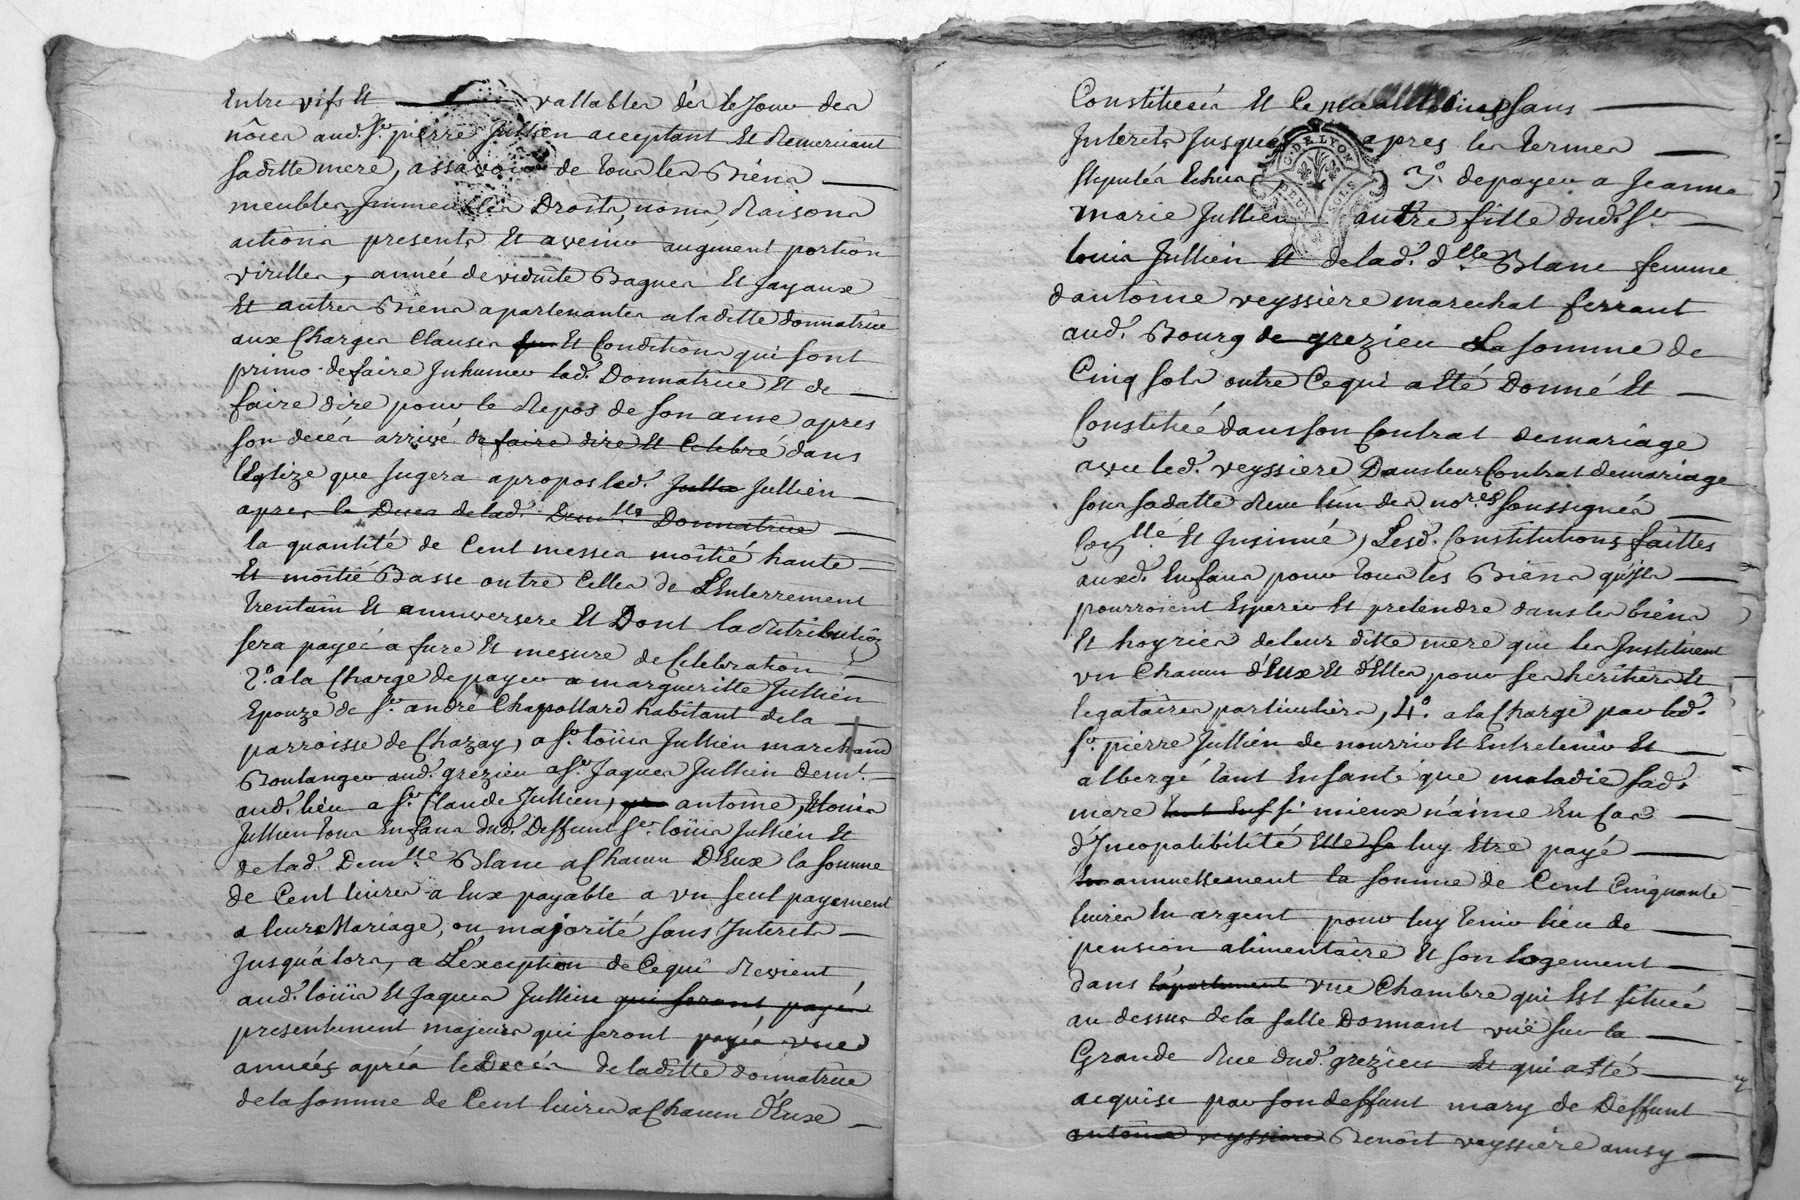 Entre vifs Et vallables dès le Jour des
nôces aud. Sr. pierre Jullien acceptant Et Remerciant
saditte mere, assavoir de tous les Biens
meubles, Immeubles Droits, noms, Raisons
actions presents Et avenir augment portion
virilles, année de viduité Bagues Et Jayaux
Et autres Biens apartenantes a laditte donnatrice
aux Charges Clauses Et Conditions qui sont
primo. de faire Inhumer lad. Donnatrice Et de
faire dire pour le Repos de son ame apres
son decés arrivé de faire dire Et Celebré dans
l'Eglize que Jugera apropos led. Jullien
apres le Deces de lad. Demlle Donnatrice
la quantité de Cent messes moitié haute
Et moitié Basse outre Celles de L'Enterrement
trentain Et anniversere Et Dont la distribution
sera payéé a fure Et mesure de Celebration
2°. a la Charge de payer a margueritte Jullien
Epouze de Sr. andré Chapottard habitant de la
parroisse de Chazay, a Sr. loüis Jullien marchand
Boulanger aud. grezieu a Sr. Jaques Jullien demt.
aud. lieu a Sr. Claude Jullien, antoine, Et louis
Jullien tous Enfans dud. Deffunt Sr. loüis Jullien Et
de lad. Demlle Blanc a Chacun D'Eux la somme
de Cent livres a Eux payable a vn seul payement
a leurs Mariage, ou majorité sans Interets
Jusqu'alors, a L'exception de Cequi Revient
aud. loüis Et Jaques Jullien qui seront payé
presentement majeurs qui seront payés vne
années aprés le Decés de laditte donnatrice
de la somme de Cent livres a Chacun d'Eux
Constitués Et Ce sans
Interets Jusqués apres les termes
stipulés Echus 3°. de payer a Jeanne
marie Jullien autre fille dud. Sr.
louis Jullien Et de lad. dlle Blanc femme
d'antoine veyssiere marechal ferrant
aud. Bourg de grezieu La somme de
Cinq sols outre Cequi a Eté Donné Et
Constituée dans son Contrat de mariage
avec led. veyssiere Dans leur Contrat de mariage
sous sa datte Reçu l'un des nores soussignés
Conllé Et Insinué, Lesd. Constitutions faittes
auxd. Enfans pour tous les Biens qu'ils
pourroient Esperer Et pretendre dans les biens
Et hoyries de leur ditte mere que les Instituent
vn Chacun d'Eux Et d'Elles, pour ses heritiers Et
legataires particuliers, 4°. a la Charge par led.
Sr. pierre Jullien de nourrir Et Entretenir Et
albergé tant En santé que maladie sad.
mere si mieux n'aime En Cas
d'Incopatibilité Elle se luy Etre payé
annuellement la somme de Cent Cinquante
livres En argent pour luy tenir lieu de
pension alimentaire Et son logement
dans l'apartement vne Chambre qui Est situéé
au dessus de la salle Donnant vuë sur la
Grande Rue dud. grezieu Et qui a Eté
acquise par son deffunt mary de Deffunt
antoine veyssiere Benoit veyssiere ainsy